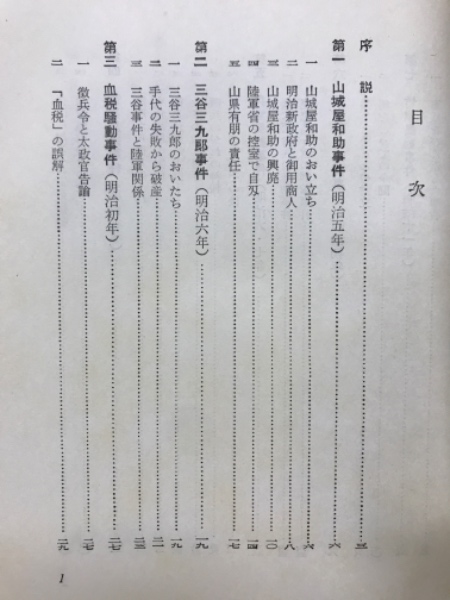 目次
序説 三
第一 山城屋和助事件(明治五年) 六
一 山城屋和助のおい立ち 六
二 明治新政府と御用商人 八
三 山城屋和助の興廃 一〇
四 陸軍省の控室で自刃 一四
五 山県有朋の責任 一七
第二 三谷三九郎事件(明治六年) 一九
一 三谷三九郎のおいたち 一九
二 手代の失敗から破産 二一
三 三谷事件と陸軍関係 二三
第三 血税騒動事件(明治初年) 二七
一 徴兵令と太政官告諭 二七
二 「血税」の誤解 二九
1